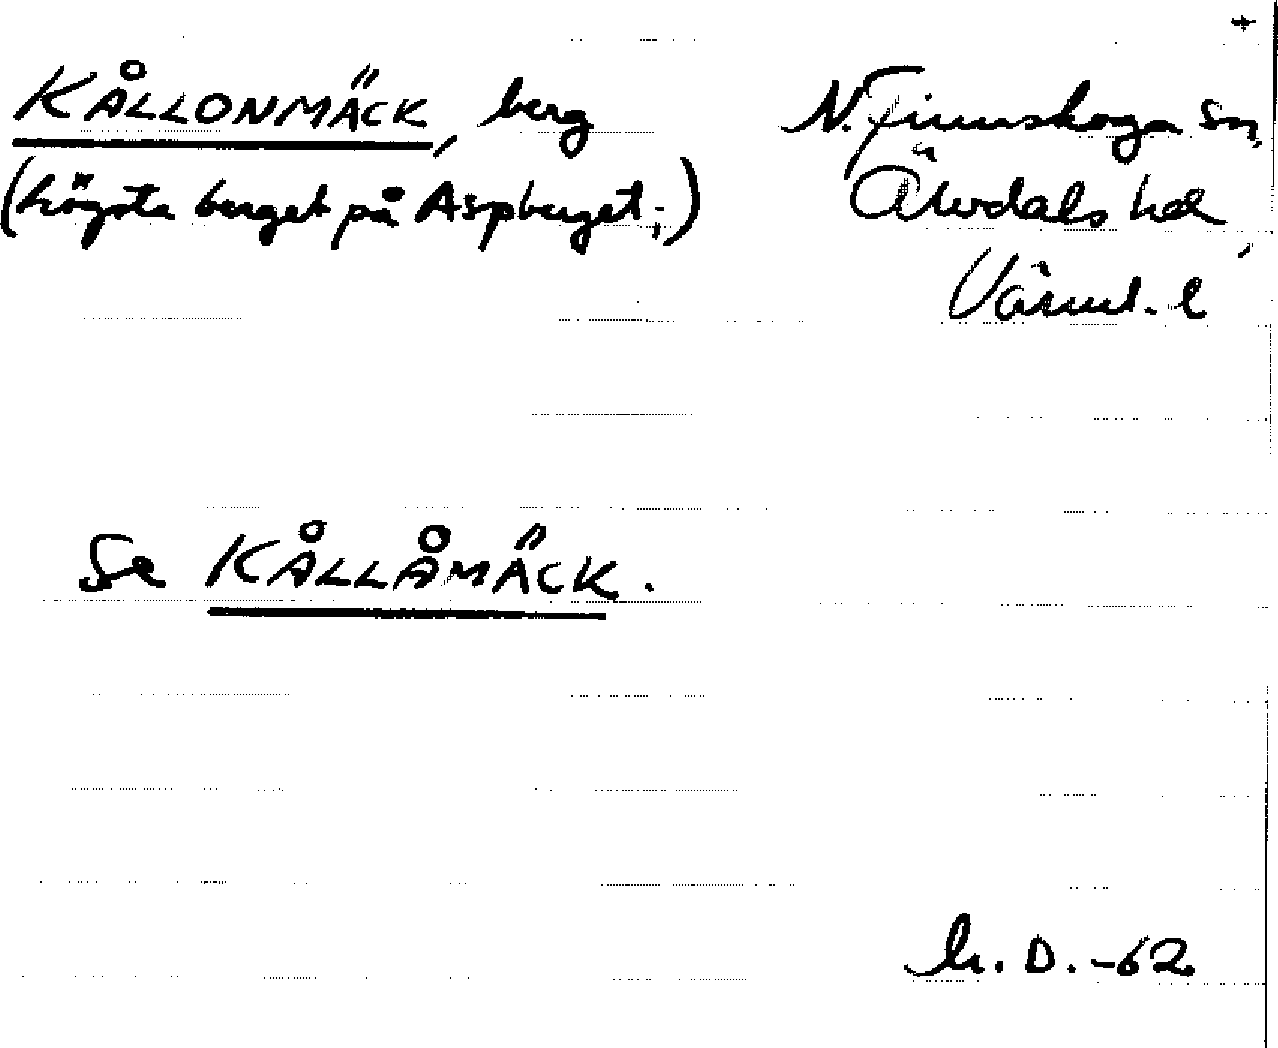 KÅLLONMÄCK, berg
(högsta berget på Aspberget.)
N. Finnskoga sn,
Älvdals hd,
Värml. l
Se KÅLLÅMÄCK.
D. -62